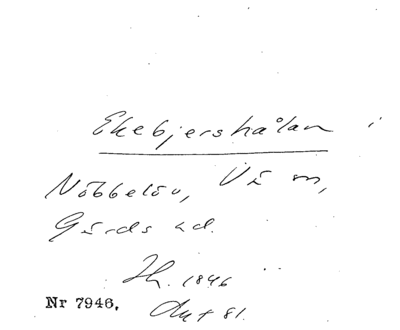 Ekebjershålan i
Nöbbelöv, Vä sn,
Gärds hd.
Jh. 1846
Nr 7946.
Akt 81.